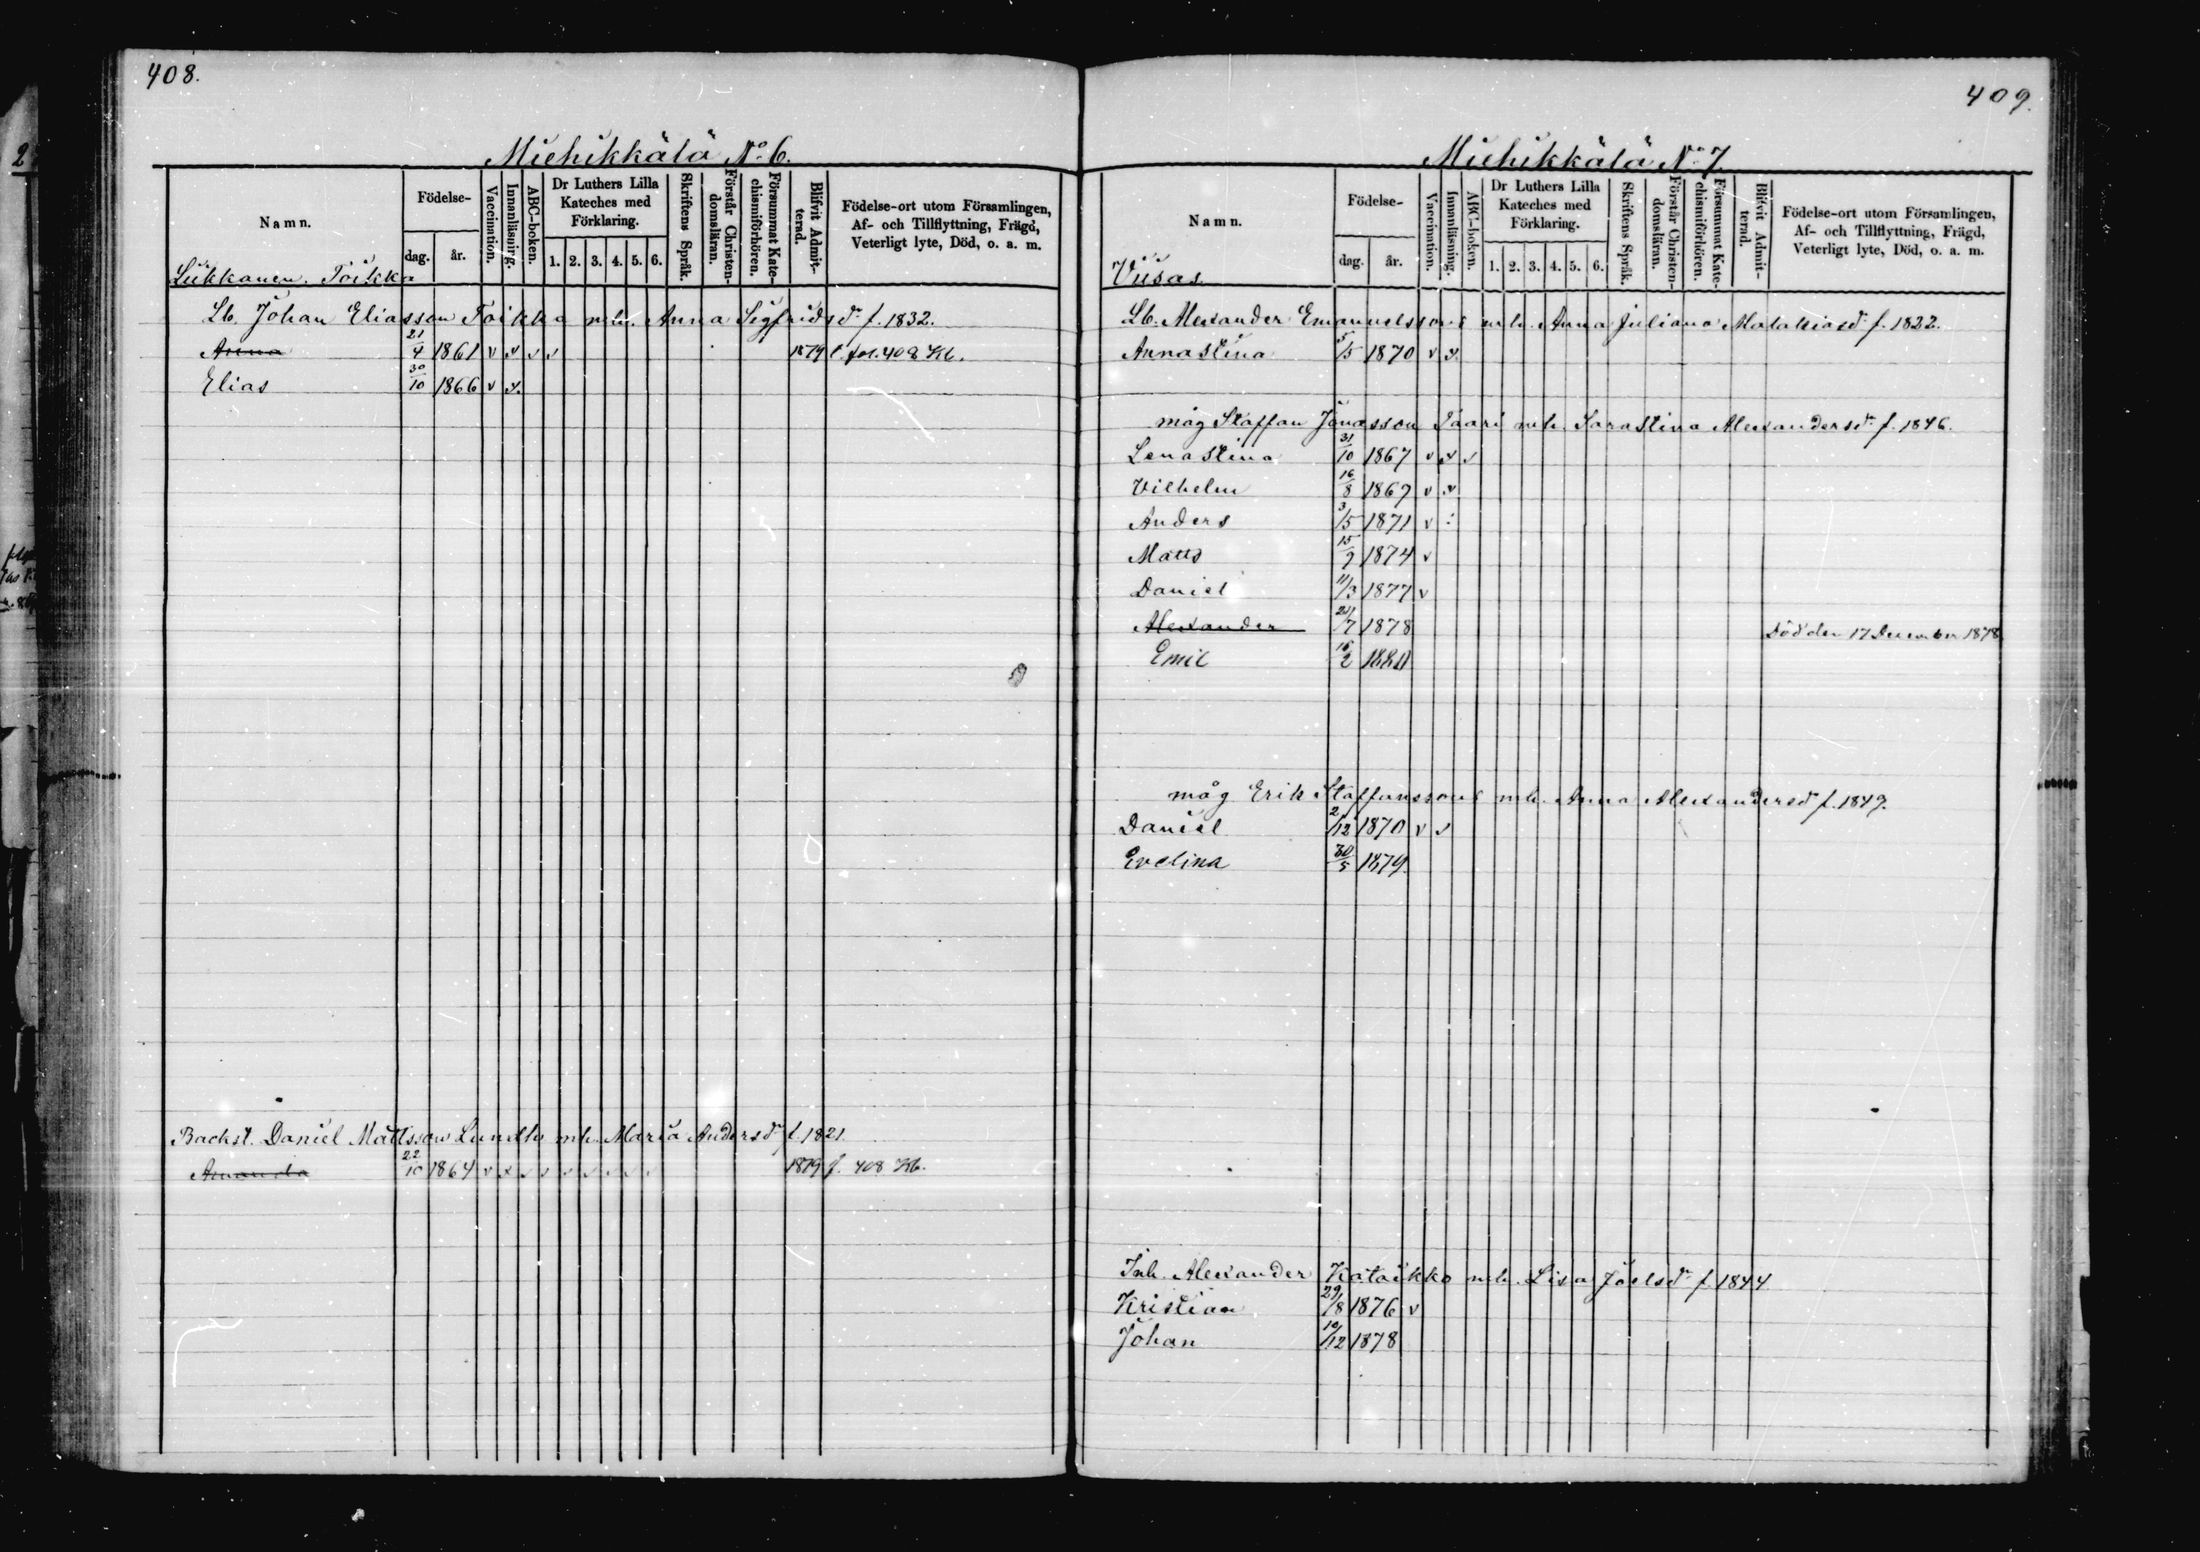 408.
Miehikkälä No 6.
Namn.
Födelse-
dag.
år.
Vaccination.
Innanläsning.
ABC-boken.
Dr Luthers Lilla
Kateches med
Förklaring.
1. 2. 3. 4. 5. 6.
Skriftens Språk.
Förstår Christen-
domsläran.
Försummat Kate-
chismiförhören.
Blifvit Admit-
terad.
Födelse-ort utom Församlingen,
Af- och Tillflyttning, Frägd,
Veterligt lyte, Död, o. a. m.
Liikkanen. Toikka
Lb. Johan Eliasson Toikka m.h. Anna Sigfridsdr f. 1832.
Anna 21/4 1861 v x v v 1879 fol. 408 Kb.
Elias 30/10 1866 v x
Backst. Daniel Mattsson m.h. Maria Andersdr f. 1821.
Amanda 22/10 1864 v x v v v v v v 1879 f. 408 Kb.
409.
Miehikkälä No 7
Namn.
Födelse-
dag.
år.
Vaccination.
Innanläsning.
ABC-boken.
Dr Luthers Lilla
Kateches med
Förklaring.
1. 2. 3. 4. 5. 6.
Skriftens Språk.
Förstår Christen-
domsläran.
Försummat Kate-
chismiförhören.
Blifvit Admit-
terad.
Födelse-ort utom Församlingen,
Af- och Tillflyttning, Frägd,
Veterligt lyte, Död, o. a. m.
Viisas.
Lb. Alexander Emanuelssons m.h. Anna Juliana f. 1822.
Anna Stina 5/5 1870 v x
måg Staffan Jonasson Taari m.h. Sara Stina Alexandersdr f. 1846.
Lena Stina 31/10 1867 v x v
Vilhelm 16/8 1869 v x
Anders 3/5 1871 v :
Matts 15/9 1874 v
Daniel 11/3 1877 v
Alexander /7 1878 Död den 17 December 1878
Emil 16/2 1880
måg Erik Staffanssons m.h. Anna Alexandersdr f. 1849.
Daniel 2/12 1870 v v
Evelina 30/5 1879.
Inh. Alexander Kataikko m.h. Lisa Joelsdr f. 1844
Kristian 29/8 1876 v
Johan 10/12 1878